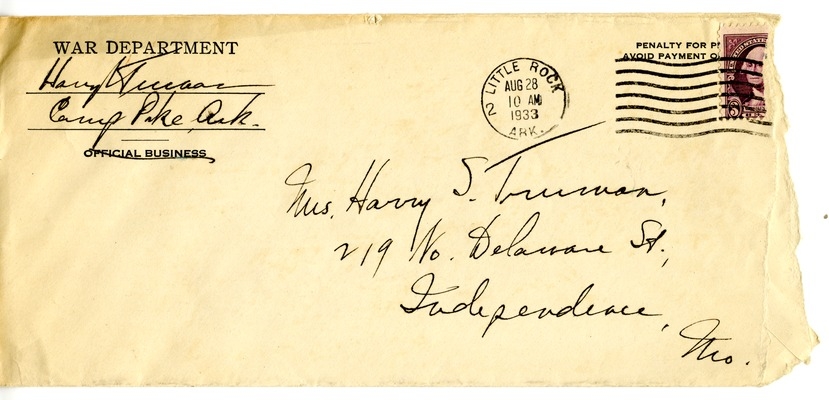 WAR DEPARTMENT
Harry S Truman
Camp Pike, Ark.
OFFICIAL BUSINESS
2 LITTLE ROCK
AUG 28
10 AM
1933
ARK.
PENALTY FOR P
AVOID PAYMENT O
UNITED STATES
3
Mrs. Harry S. Truman,
219 No. Delaware St.,
Independence,
Mo.